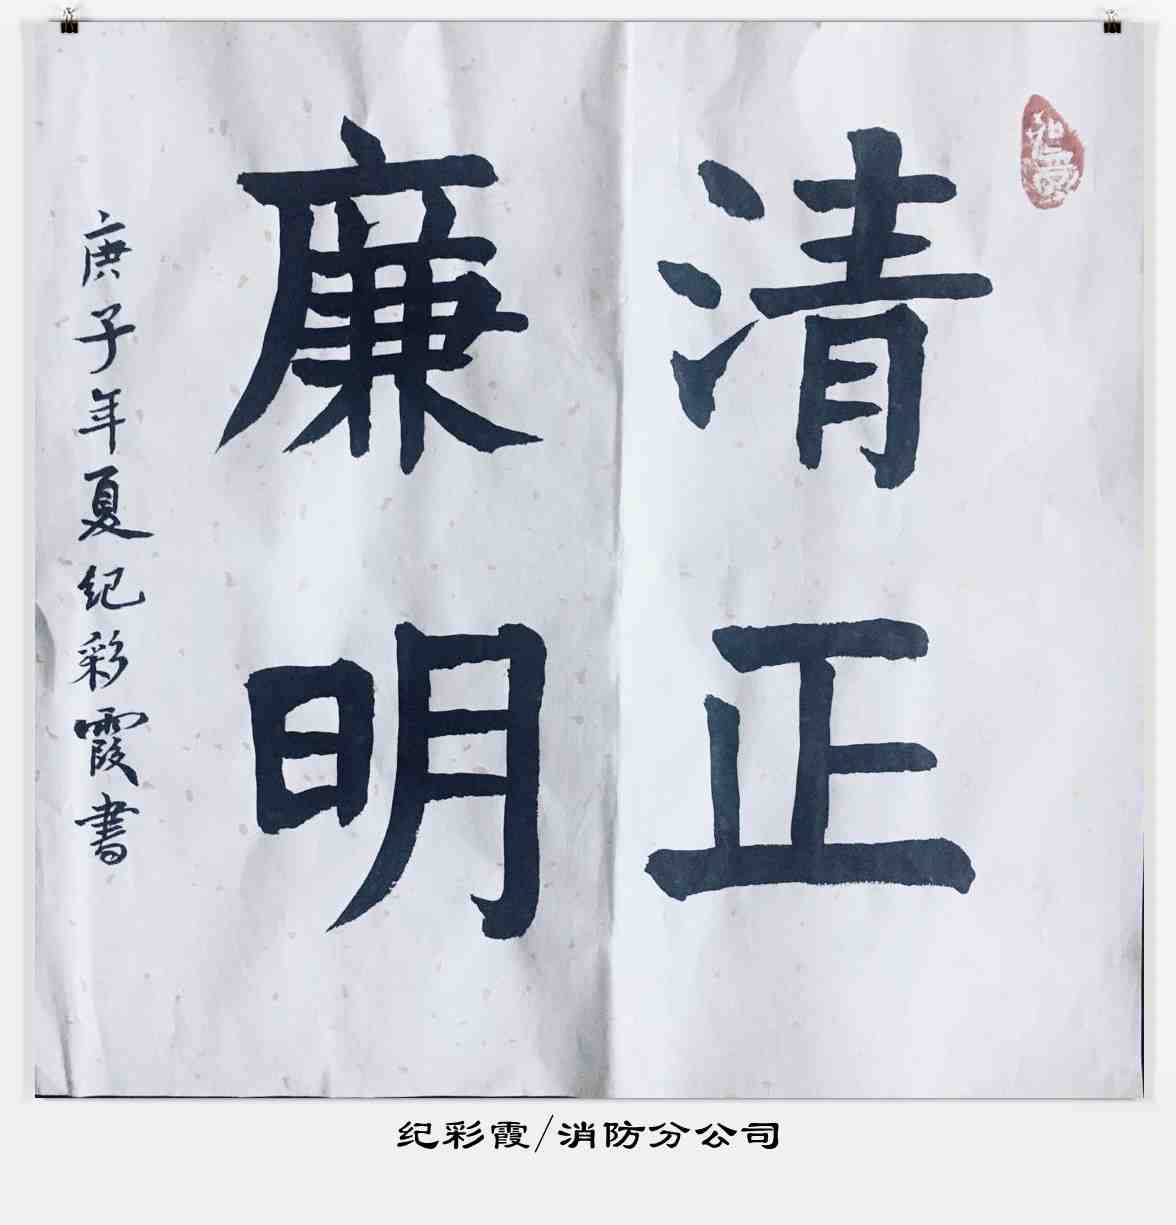 清正
廉明
庚子年夏纪彩霞书
纪彩霞/消防分公司